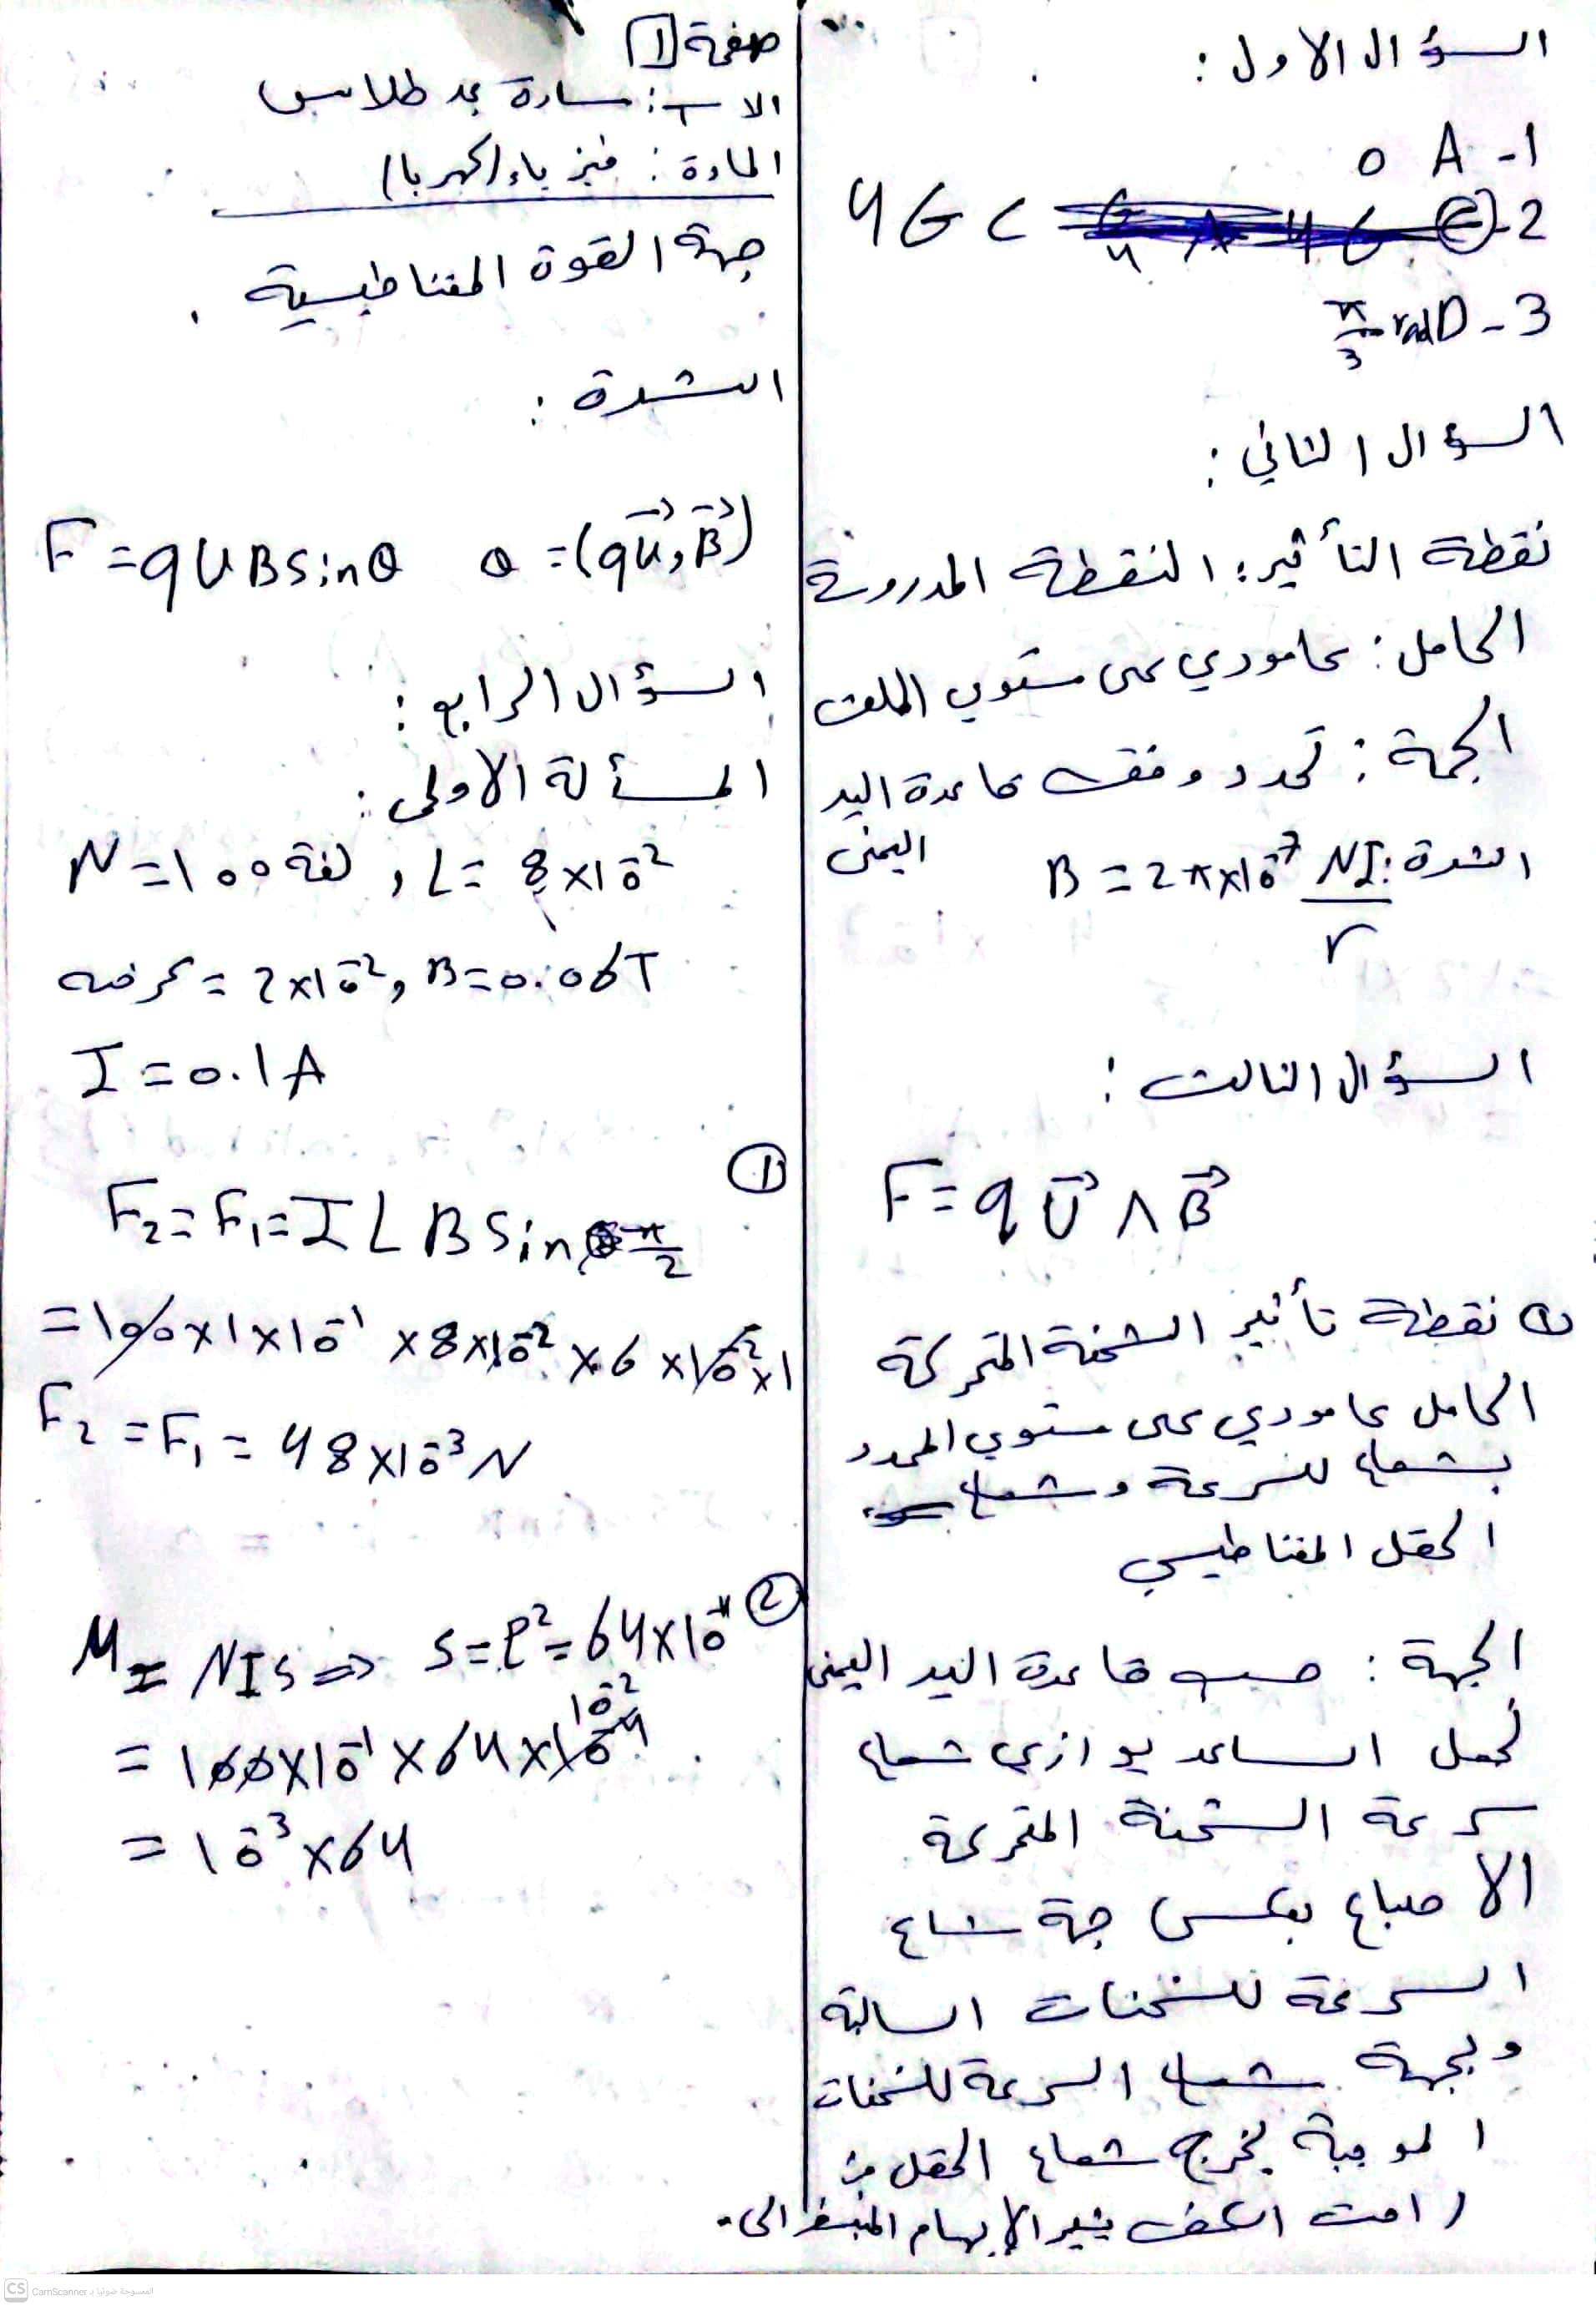 السؤال الاول :
1- A 0
2- C 4G
3- D π/3 rad
السؤال الثاني :
نقطة التأثير : النقطة المدروسة
الحامل : عامودي على مستوي الملف
الجهة : تحدد وفق قاعدة اليد
اليمنى
الشدة : B = 2π×10⁻⁷ NI/r
السؤال الثالث :
F = q U⃗ ∧ B⃗
① نقطة تأثير الشحنة المتحركة
الحامل عامودي على مستوي المحدد
بشعاع السرعة وشعاع
الحقل المغناطيسي
الجهة : حسب قاعدة اليد اليمنى
نجعل الساعد يوازي شعاع
سرعة الشحنة المتحركة
الاصباع بعكس جهة شعاع
السرعة للشحنات السالبة
وبجهة شعاع السرعة للشحنات
الموجبة يخرج شعاع الحقل من
راحت الكف يشير الإبهام الى
صفحة 1
الاسم : سارة
المادة : فيزياء (كهربا)
جهة القوة المغناطيسية .
الشدة :
F = qUB sinθ θ = (qU⃗, B⃗)
السؤال الرابع :
المسألة الاولى :
N = 100 لفة , L = 8×10⁻²
عرضه = 2×10⁻² , B = 0.06T
I = 0.1A
①
F₂ = F₁ = ILB sin π/2
= 100×1×10⁻¹ ×8×10⁻² ×6 ×10⁻²×1
F₂ = F₁ = 48×10⁻³ N
②
M = NIs ⇒ s = ℓ² = 64×10⁻⁴
= 100×10⁻¹ ×64×10⁻⁴ 10⁻²
= 10⁻³ ×64
CS CamScanner الممسوحة ضوئيا بـ